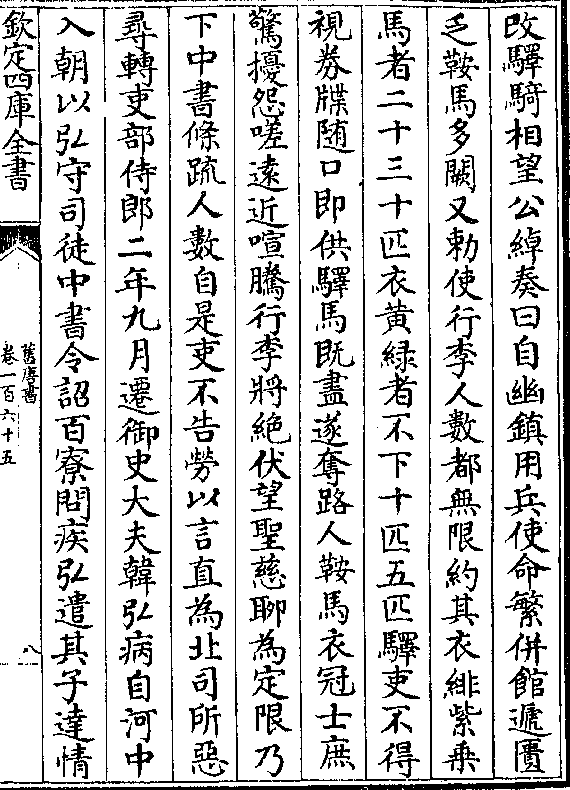 改驛騎相望公綽奏曰自幽鎮用兵使命繁併館遞匱
乏鞍馬多闕又勅使行李人數都無限約其衣緋紫乗
馬者二十三十匹衣黃緑者不下十匹五匹驛吏不得
視券牒随口即供驛馬既盡遂奪路人鞍馬衣冠士庶
驚擾怨嗟遠近喧騰行李將絶伏望聖慈聊為定限乃
下中書條疏人數自是吏不告勞以言直為北司所惡
尋轉吏部侍郎二年九月遷御史大夫韓弘病自河中
入朝以弘守司徒中書令詔百寮問疾弘遣其子達情
欽定四庫全書
舊唐書
卷一百六十五
八